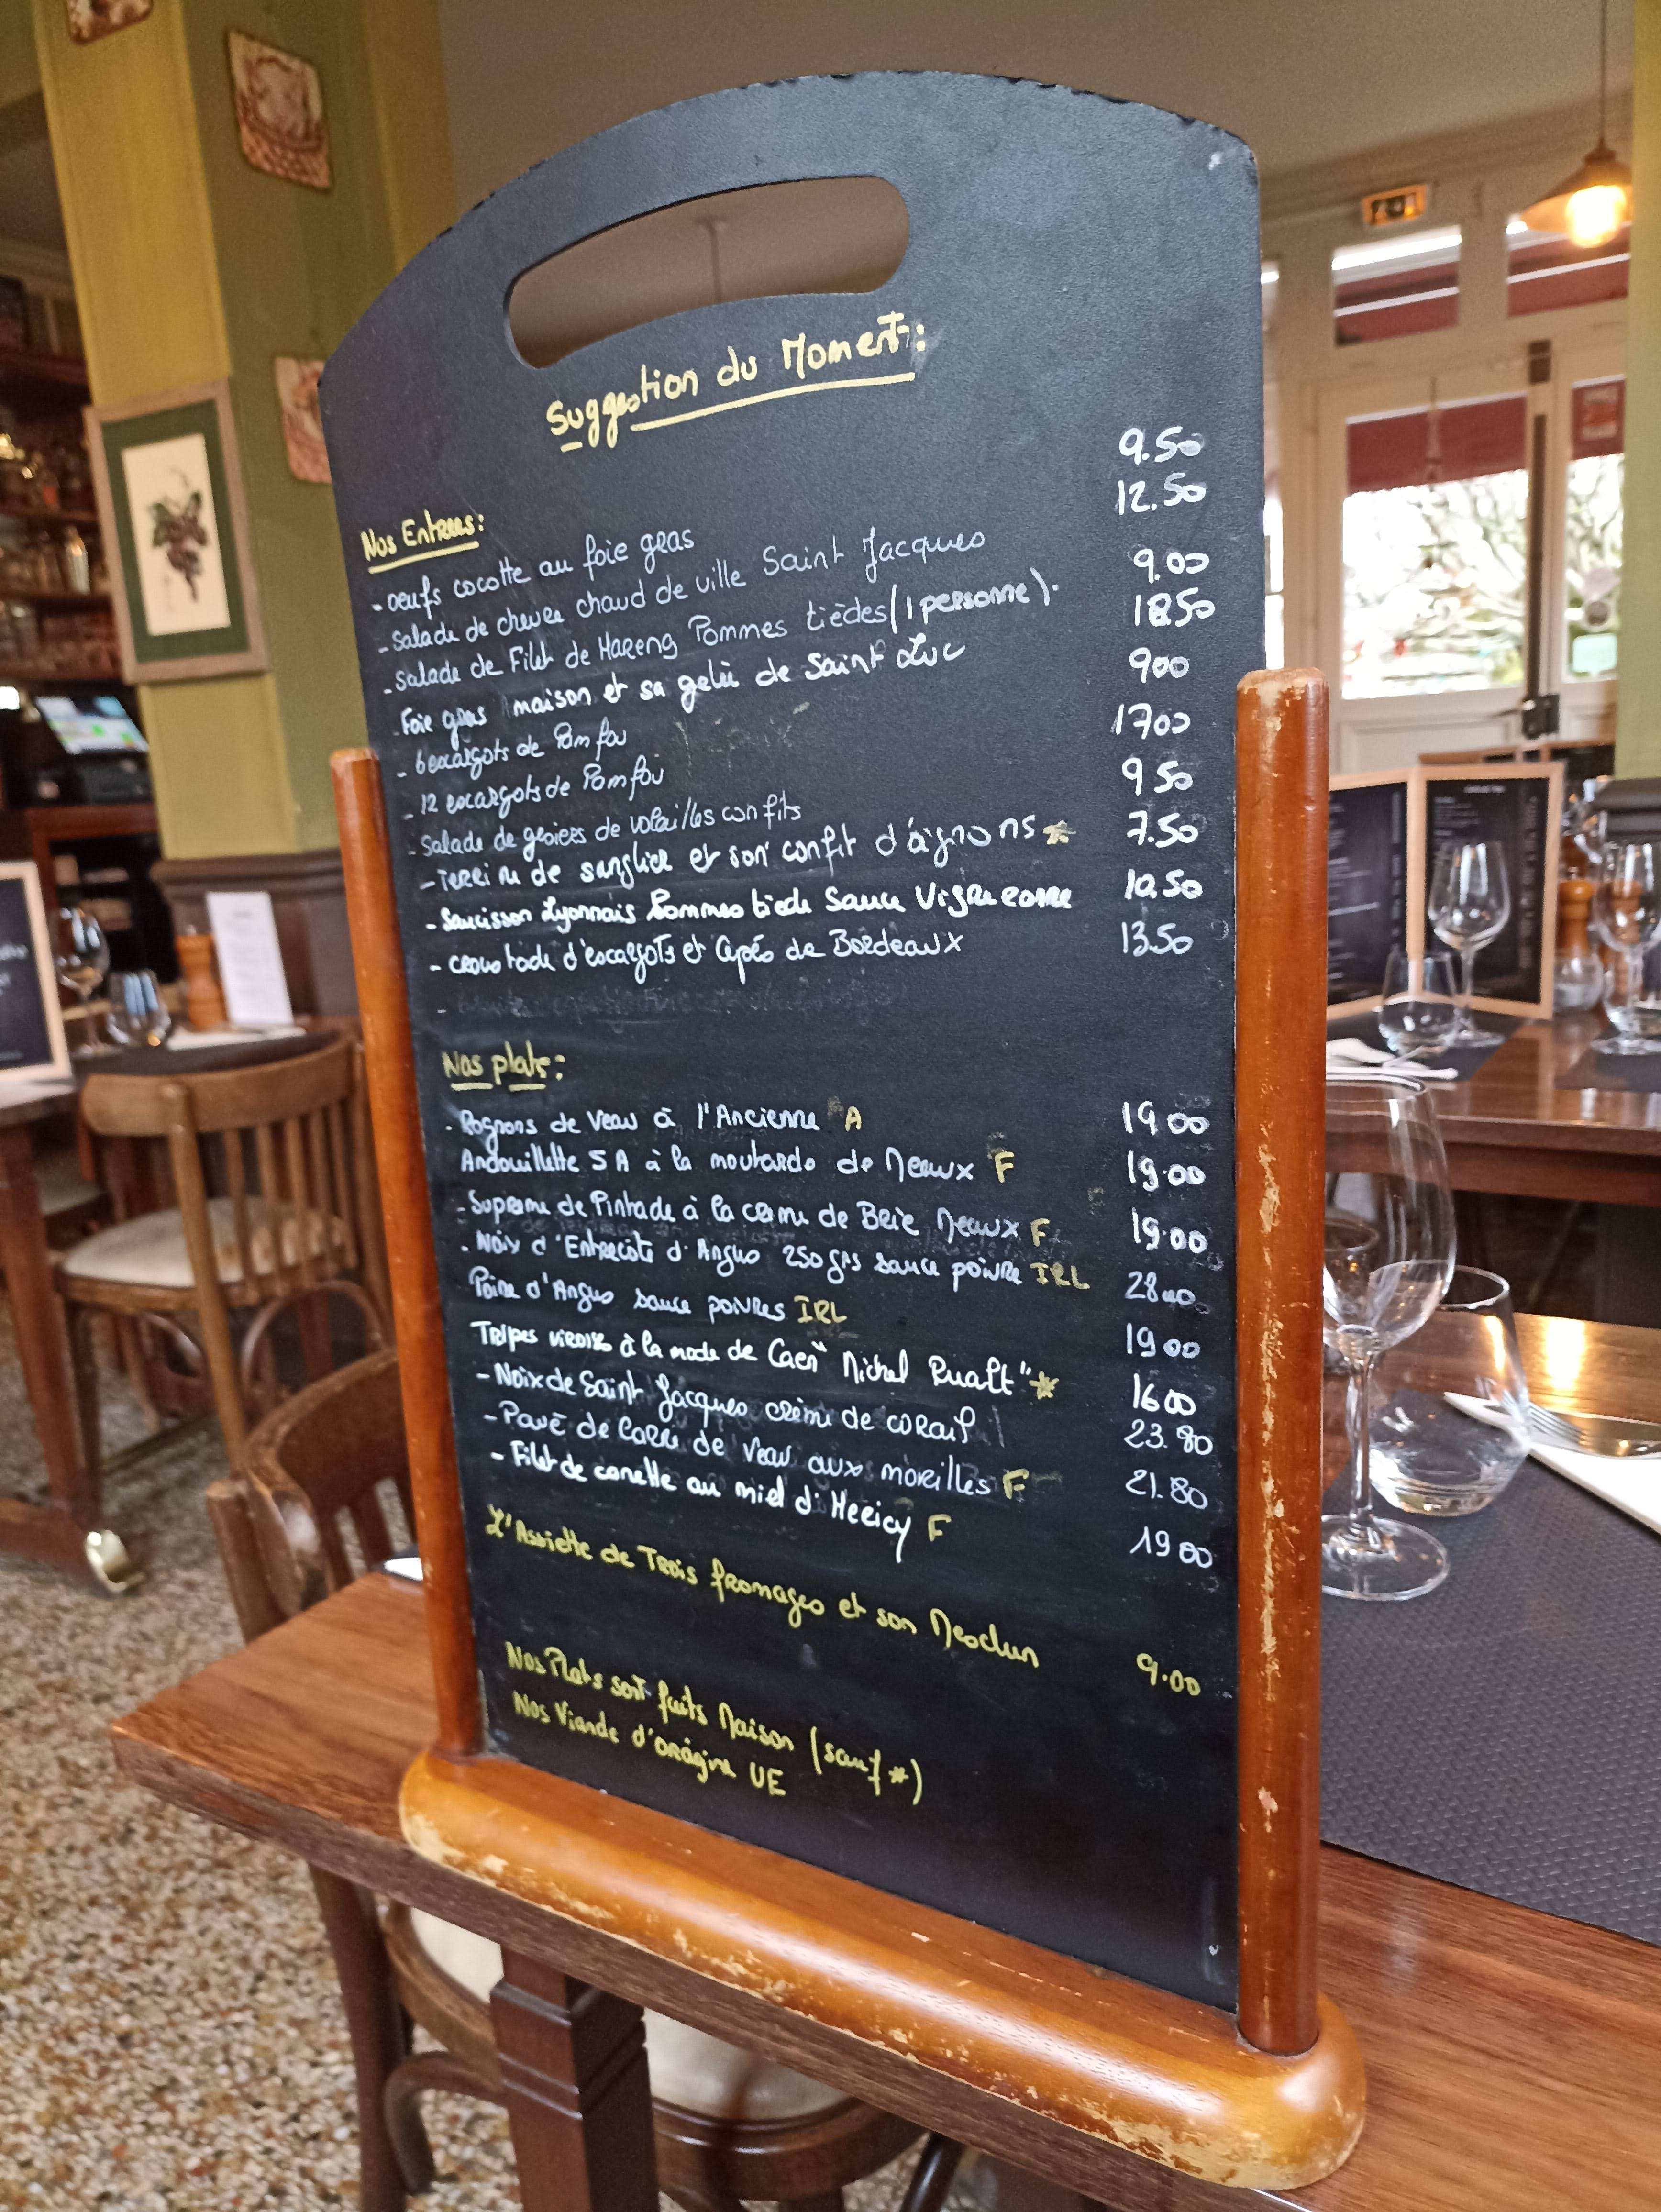 Suggestion du Moment:
Nos Entrees:
- oeufs cocotte au foie gras 9.50
- salade de chevre chaud de ville Saint Jacques 12.50
- salade de Filet de Hareng Pommes tièdes (1 personne). 9.00
Foie gras maison et sa gelée de Saint Luc 18.50
- 6 escargots de Pomfou 900
- 12 escargots de Pomfou 1700
- Salade de gesiers de volailles confits 9 50
- Terrine de sanglier et son confit d'oignons * 7.50
- Saucisson Lyonnais Pommes tiede Sauce Vigneronne 10.50
- croustade d'escargots et Cepes de Bordeaux 13.50
Nos plats:
- Rognons de Veau à l'Ancienne A 19 00
Andouillette 5 A à la moutarde de Meaux F 19.00
- Supreme de Pintade à la creme de Brie Meaux F 19.00
- Noix d'Entrecote d'Angus 250 grs sauce poivre IRL 28
Poire d'Angus sauce poivres IRL 19 00
Tripes à la mode de Caen "Michel Ruault" * 16 00
- Noix de Saint Jacques crème de corail 23.80
- Pavé de Carre de Veau aux morilles F 21.80
- Filet de canette au miel d'Hericy F 19 00
L'Assiette de Trois fromages et son Mesclun 9.00
Nos Plats sont faits Maison (sauf *)
Nos Viande d'origine UE